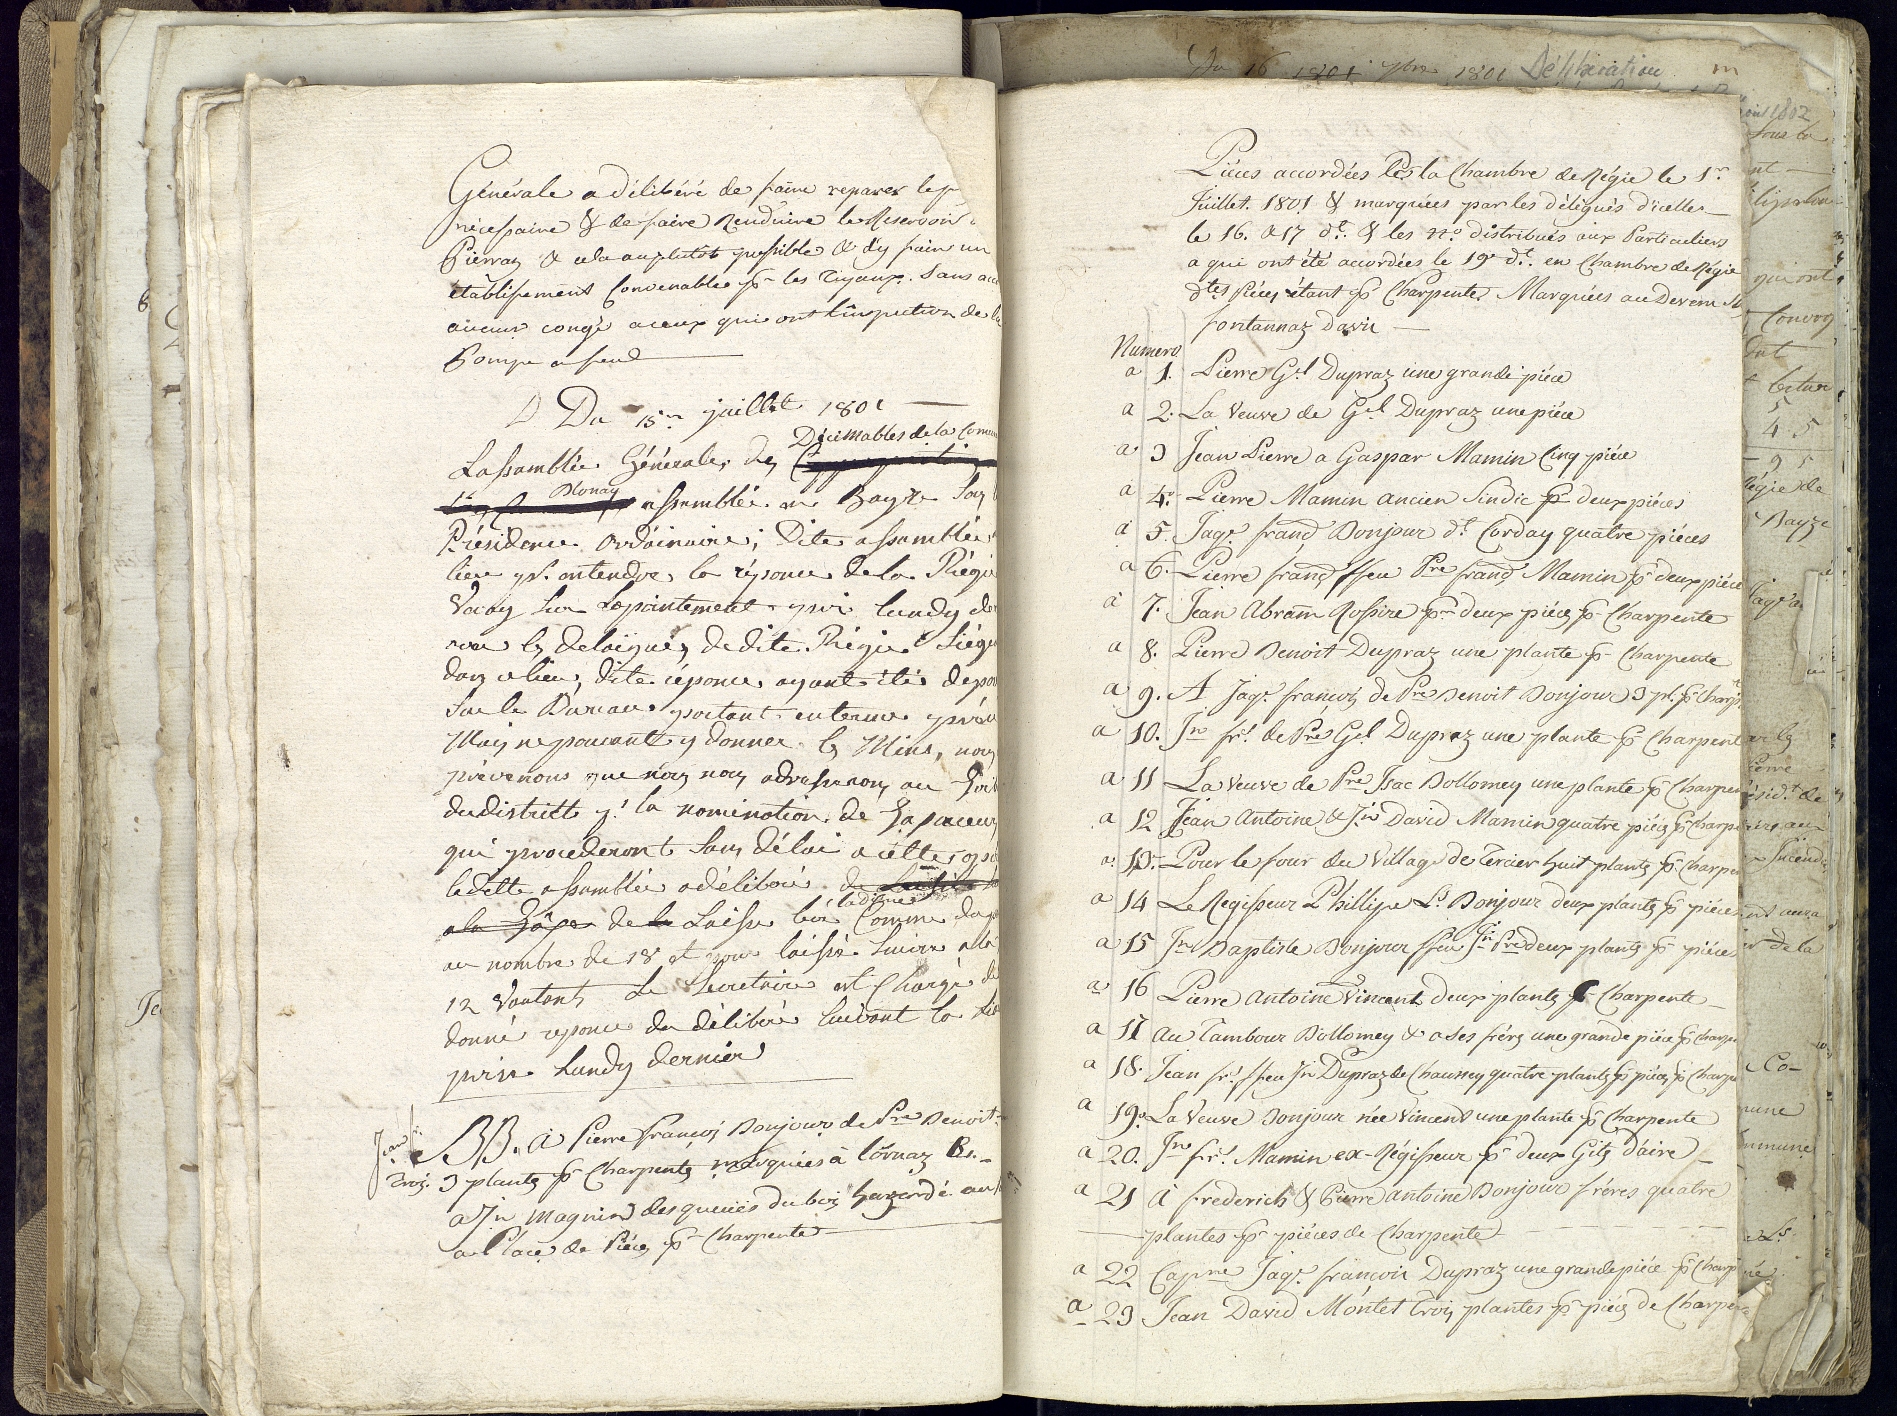 Générale a délibéré de faire reparer le p
nécessaire & de faire Renduire le Reservoir
Pierraz & cela auplutot possible & d'y faire un
établissement Convenable pr les Tuyaux. Sans acc
aucun congé a ceux qui ont l'inspection de la
Pompe a feu
Du 15me juillet 1801
Lassamblée Générale des Décimables de la Comm
Blonay assamblée au Bayse Sou
Présidence Ordoinaire; Dite assamblée
lieu pr. entendre la réponce de la Régie
Vevey Sur Lapointement pris lundy de
avec les deleigués de dite Régie Siége
dans ce lieu, dite réponce ayant été dépo
Sur le Bureau portant en terme préc
Mais ne pouvant y donner les Mins, nous
prévenons que nous nous adresserons au
du district pr la nomination de Tapaceurs
qui procederont Sans délai a cette
ledite assamblée a délibéré de
a la de Laisse leve la dime Comme
au nombre de 18 et pour laisse Suivre
12 Vautant Le Secretaire est Chargé de
donné reponce du délibéré Suivant la
prise Lundy dernier
NB. à Pierre François Donjour de Pre Benoit
Jean fr
trois. 3 plants pr Charpente marquées à lOrnaz Bs.
a Jn Magnin des queuës du bois hazardé
a Place de Piéces pr Charpente
Du 16 1801 7bre 1801 Délibération
Aout 1802
Piéces accordées Par la Chambre de Régie le 1r
Juillet. 1801 & marquées par les délégués d'icelle
le 16. & 17 dt. & les no. distribués aux Particuliers
a qui ont été accordées le 19e dt. en Chambre de Régie
dtes Piéces étant pr Charpente. Marquées au Devem
fontannaz Davie
Numero
a 1. Pierre Gel Dupraz une grande piéce
a 2. La Veuve de Gel Dupraz une piéce
a 3 Jean Pierre a Gaspar Mamin Cinq piéce
a 4. Pierre Mamin ancien Sindic pr deux piéces
a 5. Jaqs. franç Bonjour dt. Corday quatre piéces
a 6. Pierre franç ffeu Pre franç Mamin pr deux piéce
a 7. Jean Abram Rossire pr deux piéces pr Charpente
a 8. Pierre Benoit Dupraz une plante pr Charpente
a 9. A Jaqs. françois de Pre Benoit Bonjour 3 pl. pr Charp
a 10. Jn frs. de Pre Gel Dupraz une plante pr Charpent
a 11 La Veuve de Pre Isac Dollomey une plante pr Charpen
a 12 Jean Antoine & Jn David Mamin quatre piéces pr Charp
a 13. Pour le four du Village de Tercier huit plantes pr Charpen
a 14 Le Regisseur Phillipe Ls. Bonjour deux plantes pr piéces
a 15 Jn Baptiste Bonjour ffeu Jn Pre deux plants pr piéces
a 16 Pierre Antoine Vincent deux plants pr Charpente
a 17 Au Tambour Dollomey & a ses fréres une grande piéce pr Charpe
a 18. Jean frs. ffeu Jn Dupraz de Chaussey quatre plants pr piéces pr Charpe
a 19. La Veuve Bonjour née Vincent une plante pr Charpente
a 20. Jn frs. Mamin ex-Régisseur pr deux Gits d'aire
a 21 à frederich & Pierre antoine Bonjour fréres quatre
plantes pr piéces de Charpente
a 22 Capne Jaqs. françois Dupraz une grande piéce pr Charp
a 23 Jean David Montet Trois plantes pr piéces de Charpen